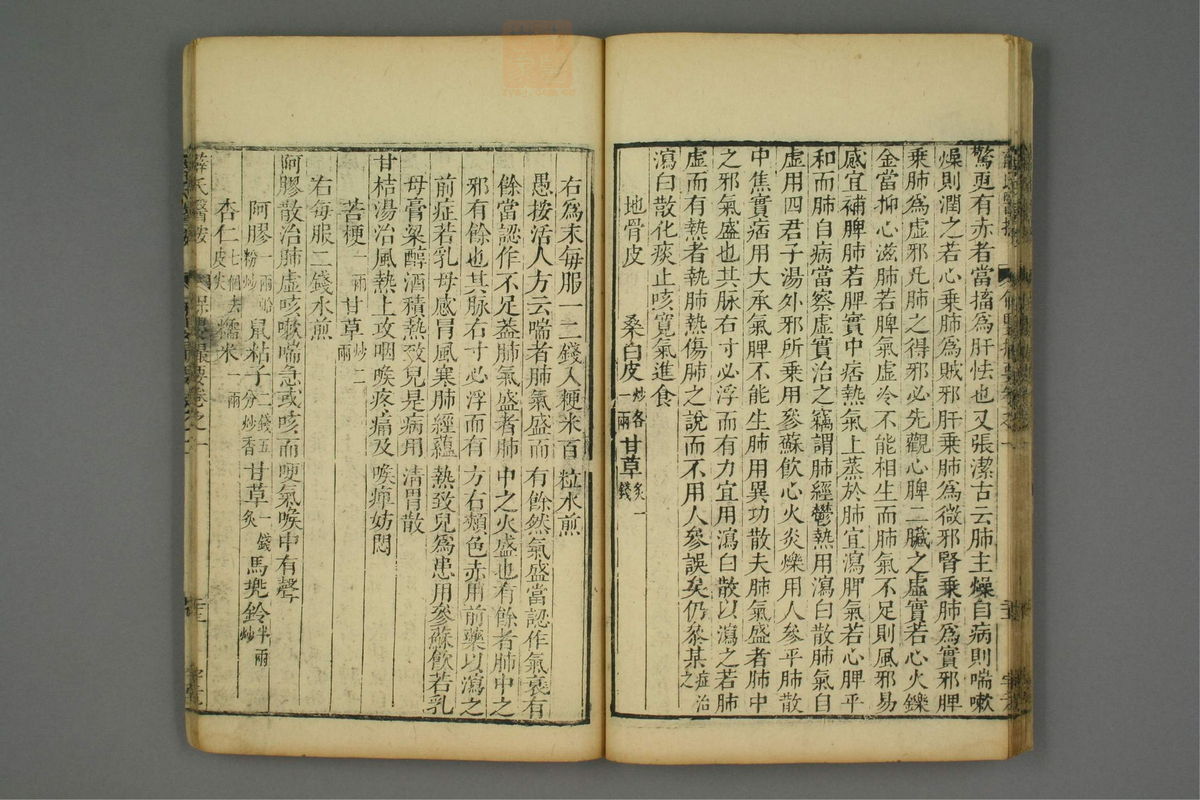 驚更有赤者當搐為肝怯也又張潔古云肺主燥自病則喘嗽
燥則潤之若心乘肺為賊邪肝乘肺為微邪腎乘肺為實邪脾
乘肺為虛邪凡肺之得邪必先觀心脾二臟之虛實若心火鑠
金當抑心滋肺若脾氣虛冷不能相生而肺氣不足則風邪易
感宜補脾肺若脾實中痞熱氣上蒸於肺宜瀉脾氣若心脾平
和而肺自病當察虛實治之竊謂肺經鬱熱用瀉白散肺氣自
虛用四君子湯外邪所乘用參蘇飲心火炎爍用人參平肺散
中焦實病用大承氣脾不能生肺用異功散夫肺氣盛者肺中
之邪氣盛也其脉右寸必浮而有力宜用瀉白散以瀉之若肺
虛而有熱者執肺熱傷肺之說而不用人參誤矣仍叅某症治之
瀉白散化痰止咳寛氣進食
地骨皮 桑白皮炒各一兩 甘草炙一錢
右為末毎服一二錢入粳米百粒水煎
愚按活人方云喘者肺氣盛而有餘然氣盛當認作氣衰有
餘當認作不足蓋肺氣盛者肺中之火盛也有餘者肺中之
邪有餘也其脉右寸必浮而有方右頰色赤用前藥以瀉之
前症若乳母感冒風寒肺經蘊熱致兒為患用參蘇飲若乳
母膏粱醇酒積熱致兒是病用清胃散
甘桔湯治風熱上攻咽喉疼痛及喉痹妨悶
苦梗一兩 甘草炒二兩
右每服二錢水煎
阿膠散治肺虛咳嗽喘急或咳而哽氣喉中有聲
阿膠一兩蛤粉炒 鼠粘子二錢五分炒香 甘草炙一錢 馬兜鈴半兩炒
杏仁七個去皮尖 糯米一兩
薛氏醫按